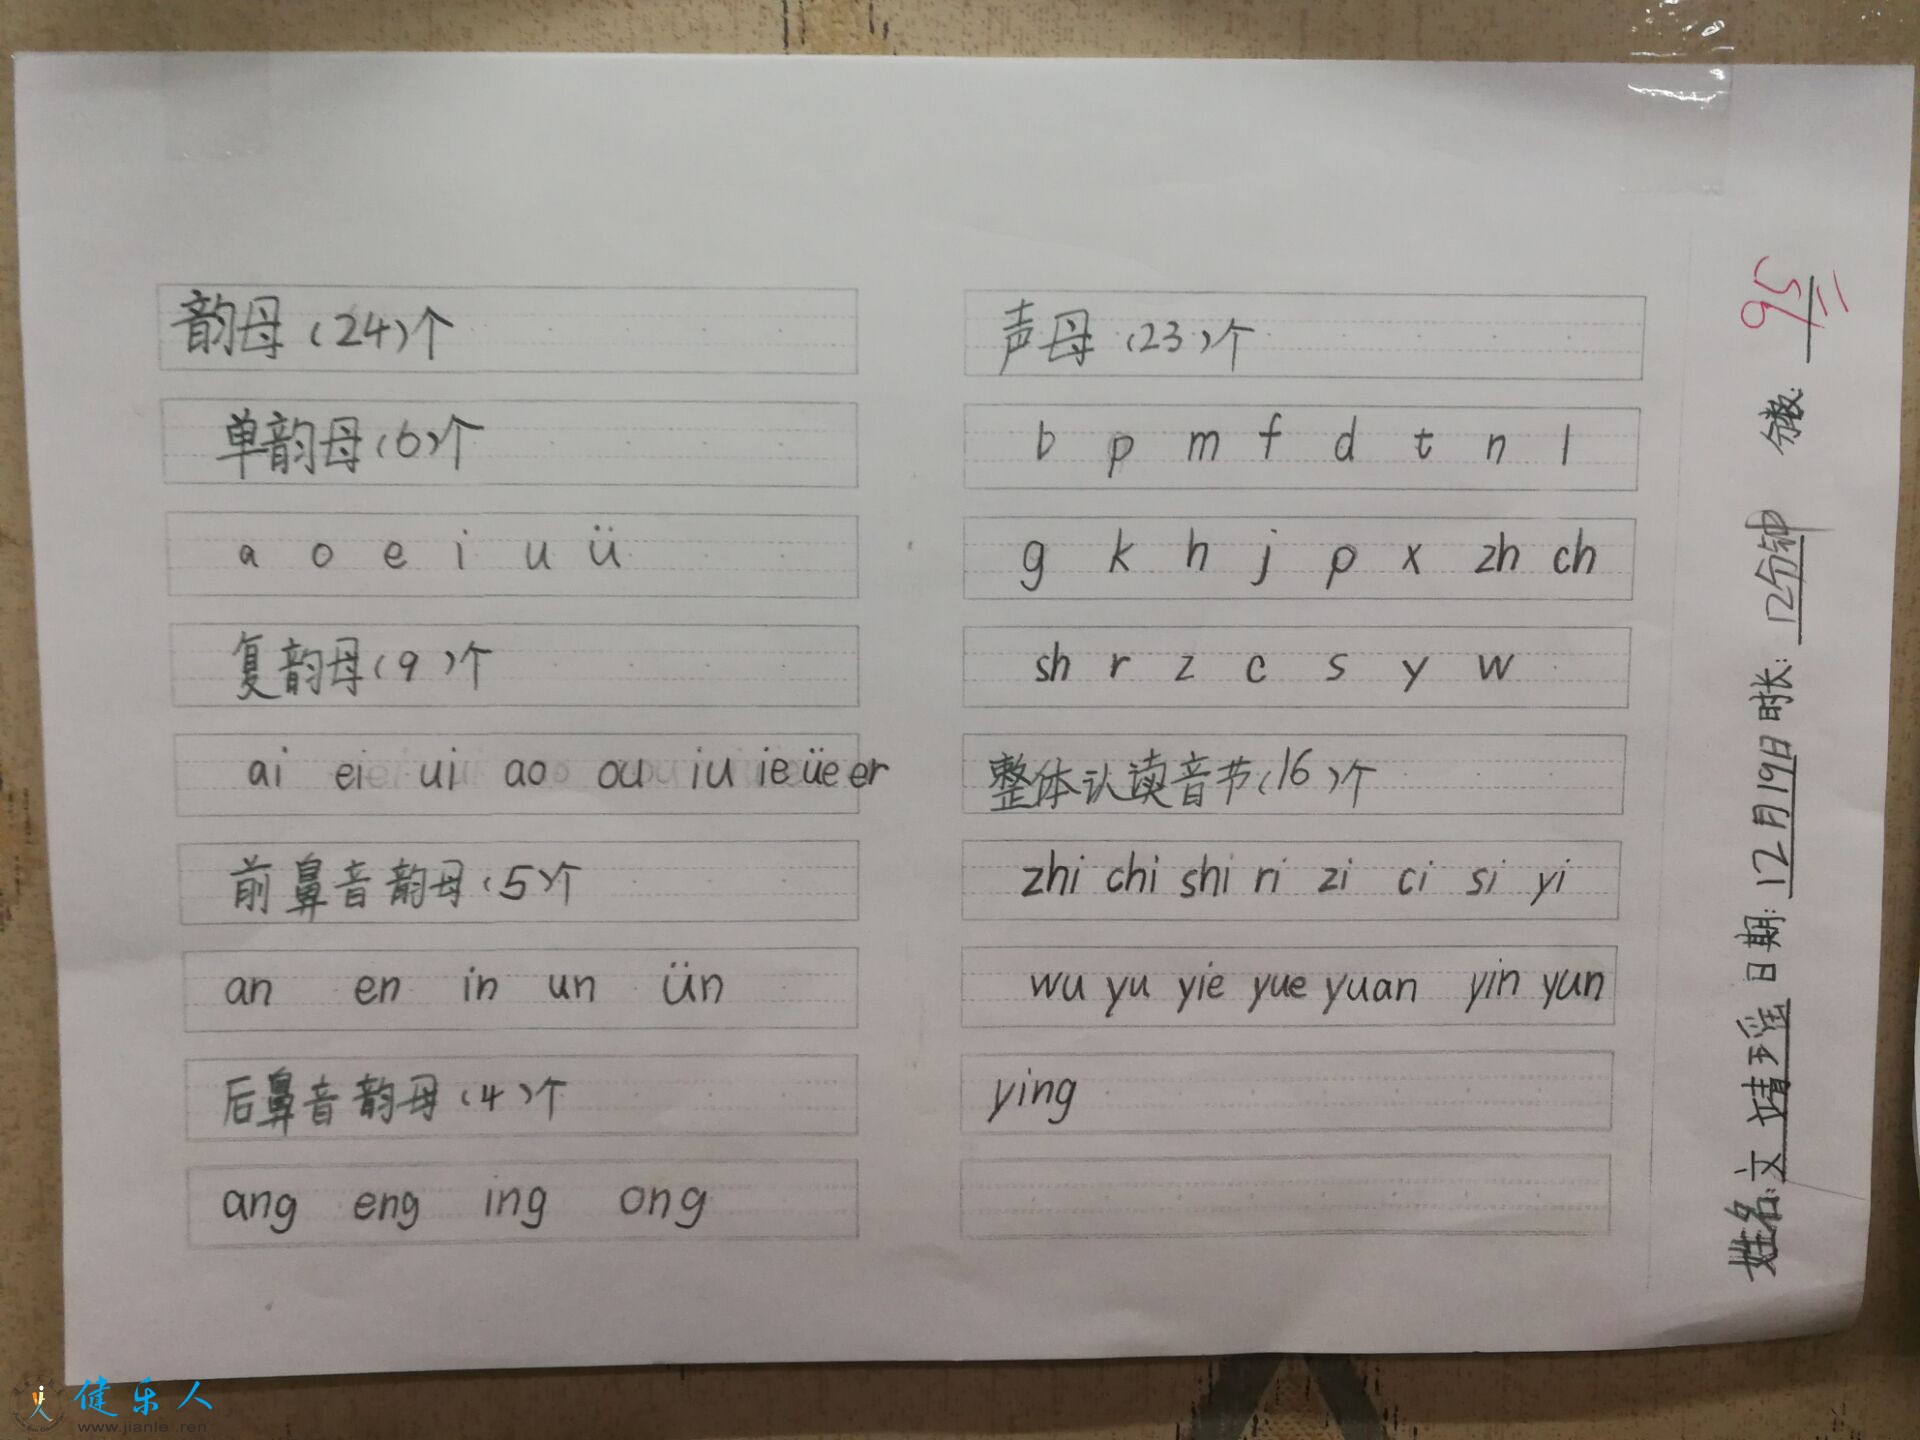 韵母(24)个
单韵母(6)个
a o e i u ü
复韵母(9)个
ai ei ui ao ou iu ie üe er
前鼻音韵母(5)个
an en in un ün
后鼻音韵母(4)个
ang eng ing ong
声母(23)个
b p m f d t n l
g k h j p x zh ch
sh r z c s y w
整体认读音节(16)个
zhi chi shi ri zi ci si yi
wu yu yie yue yuan yin yun
ying
姓名:文婧瑶 日期:12月19日 时长:12分钟 分数:
健乐人
www.jianle.ren